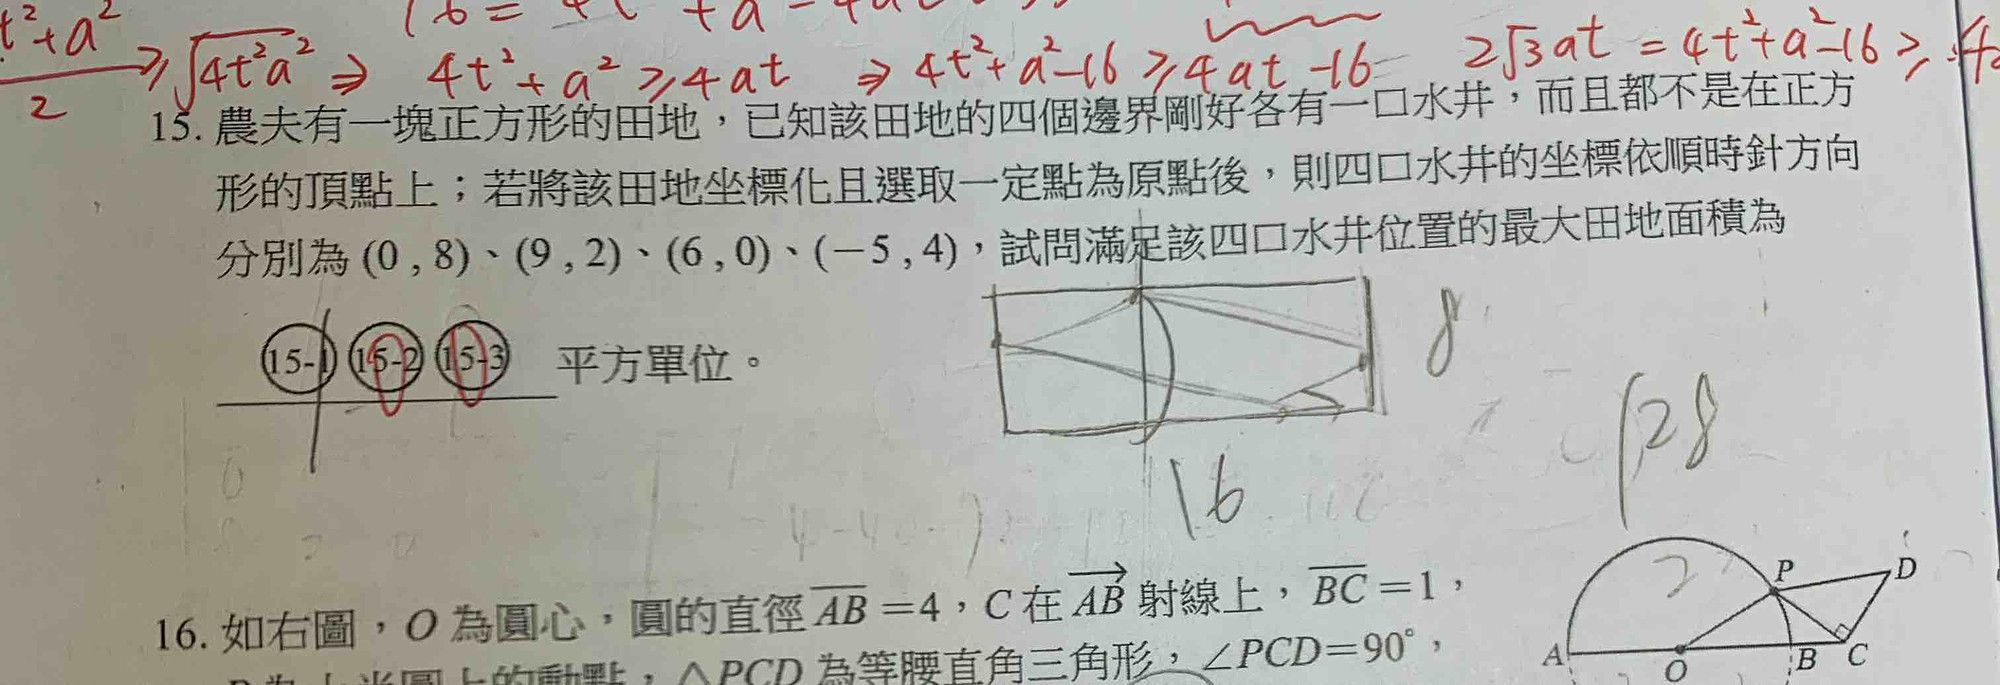 t²+a²/2 ≥ √4t²a² ⇒ 4t²+a² ≥ 4at ⇒ 4t²+a²-16 ≥ 4at-16 2√3at = 4t²+a²-16 ≥
15. 農夫有一塊正方形的田地，已知該田地的四個邊界剛好各有一口水井，而且都不是在正方
形的頂點上；若將該田地坐標化且選取一定點為原點後，則四口水井的坐標依順時針方向
分別為 (0 , 8)、(9 , 2)、(6 , 0)、(－5 , 4)，試問滿足該四口水井位置的最大田地面積為
15-1 15-2 15-3 平方單位。
8
128
16
16. 如右圖，O 為圓心，圓的直徑 AB =4，C 在 AB 射線上，BC =1，
P D
A O B C
△PCD 為等腰直角三角形，∠PCD=90°，